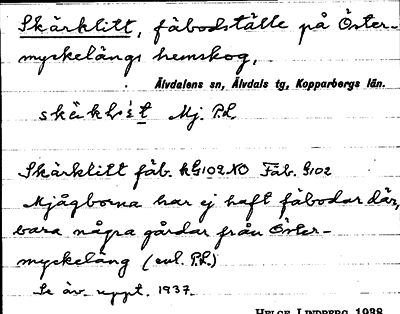 Skärklitt, fäbodställe på Öster-
myckelängs hemskog,
Älvdalens sn, Älvdals tg, Kopparbergs län.
Mj. P.L.
Skärklitt fäb. kG102NO Fäb. G102
Mjågborna har ej haft fäbodar där,
bara några gårdar från Öster-
myckeläng (enl. P.L.)
Se äv. uppt. 1937.
HELGE LINDBERG 1938